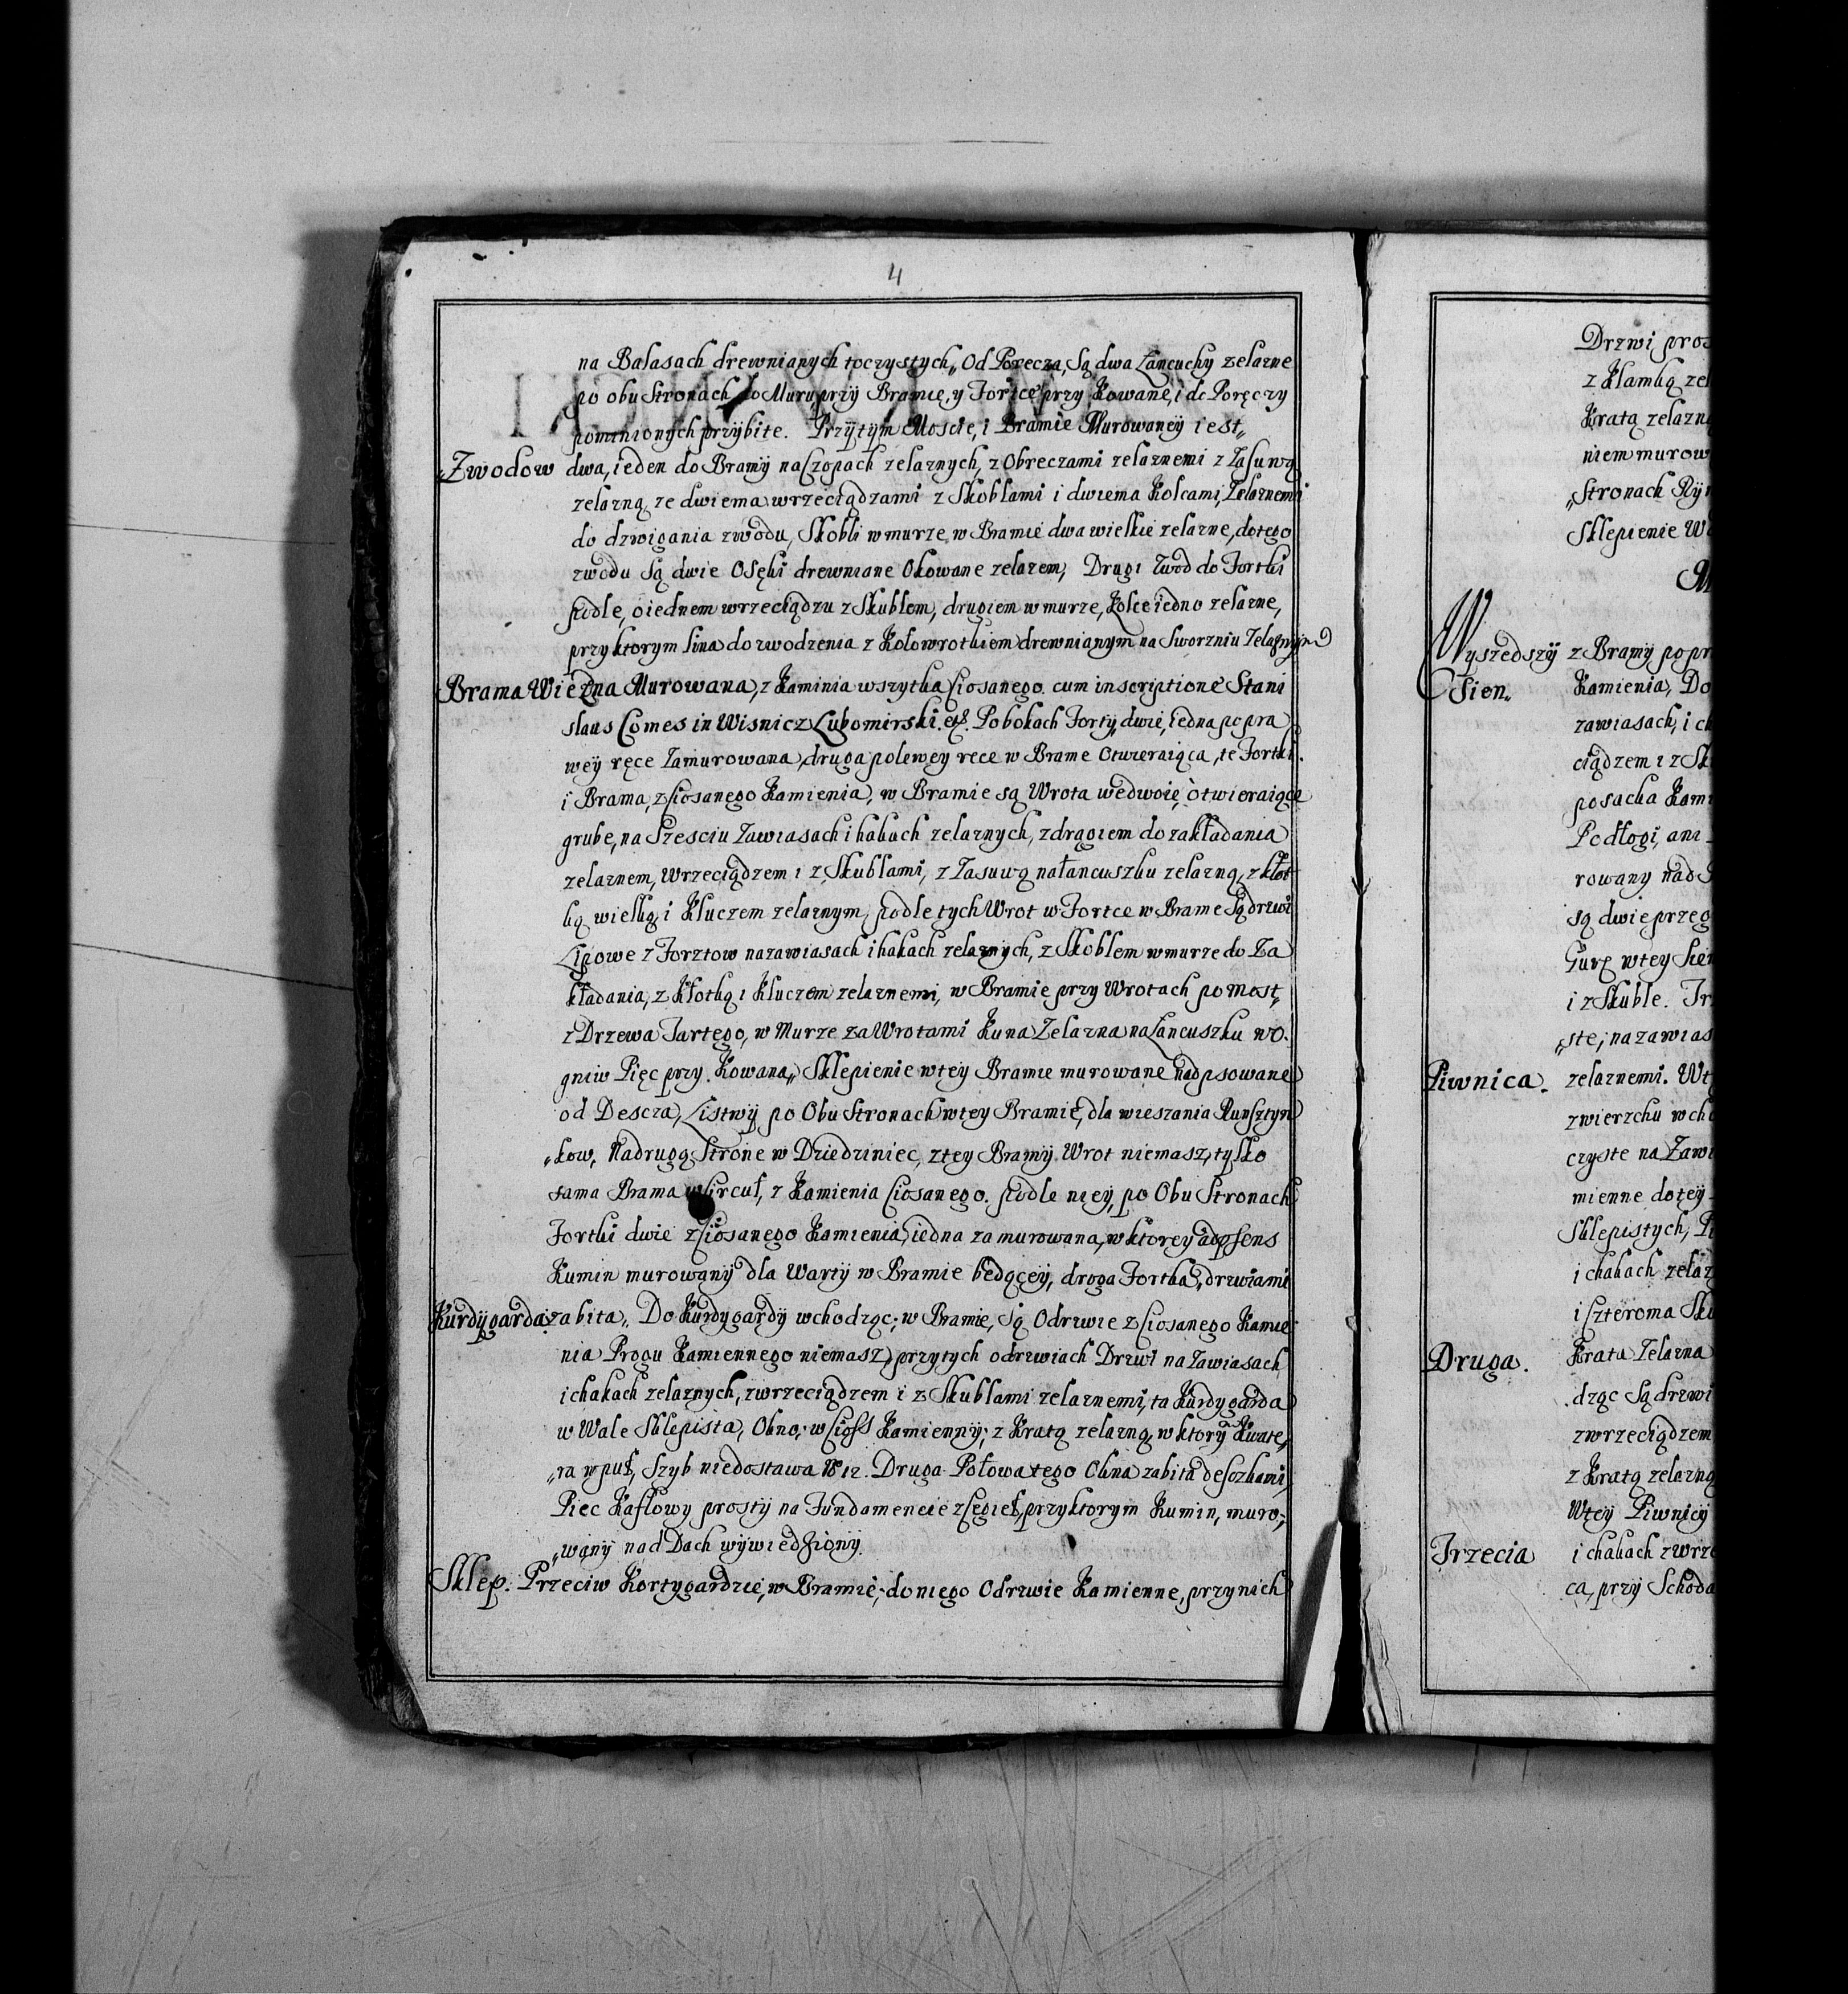 4
na Balasach drewnianych toczystych„ Od Poręcza, Są dwa Łancuchy zelazne
po obu Stronach do Muru, przÿ Bramie, y Fortce przy Kowane, i do Poręczy
pomnionych przÿbite. Przÿtÿm Moscie, i Bramie Murowaneÿ iest„
„Zwodow dwa, ieden do Bramÿ naCzopach zelaznych, z Obreczami zelaznemi z Zasuwą
zelazną, ze dwiema wrzeciądzami z Skoblami i dwiema Kolcami, Zelaznemi
do dzwigania zwodu, Skobli wmurze, w Bramie dwa wielkie zelazne, dotego
zwodu Są dwie Osęki drewniane Okowane zelazem, Drugi Zwod do Fortki
podle, oiednem wrzeciądzu z Skublem, drugiem w murze, Kolce iedno zelazne,
przyktorym lina do zwodzenia z Kołowrotkiem drewnianym na Sworzniu Zelaznym
Brama Wiezna Murowana, z Kaminia wszytka Ciosanego. cum inscriptione Stani
slaus Comes in Wisnicz Lubomirski. etc. Pobokach Forty„ dwie, iedna po pra
weÿ ręce Zamurowana, druga polewey rece w Brame Otwieraiąca, te Fortki.
i Brama, zCiosanego Kamienia, w Bramie są Wrota wedwoie, otwieraiące
grube, na Szesciu Zawiasach i hakach zelaznych, z drągiem do zakładania
zelaznem, Wrzeciądzem i z Skublami, z Zasuwą nałancuszku zelazną, z kłot
ką wielką, i Kluczem zelaznym, podle tych Wrot w Fortce w Brame Są drzwi
Lipowe z Forztow nazawiasach ihakach zelaznych, z Skoblem wmurze do Za
kładania, z Kłotką i Kluczem zelaznemi, w Bramie przy Wrotach pomost„
z Drzewa Tartego, w Murze za Wrotami Kuna Zelazna na Łancuszku wo.
gniw Pięc przy. Kowana„ Sklepienie wtey Bramie murowane nadpsowane
od Descza, Listwÿ po Obu Stronach wtey Bramie, dla wieszania Runsztyn
„kow, Nadrugą Strone w Dziedziniec, ztey Bramÿ Wrot niemasz, tylko
sama Brama wCircuł, z Kamienia Ciosanego. podle nieÿ, po Obu Stronach
Fortki dwie zCiosanego Kamienia, iedna zamurowana, w ktorey adpsens
Kumin murowanÿ dla Wartÿ w Bramie będąceÿ, droga Fortka, drzwiami
Kurdÿgarda. zabita„ Do Kurdÿgardÿ wchodząc; w Bramie, Są Odrzwie zCiosanego Kamie
nia Progu Kamiennego niemasz, przytych odrzwiach Drzwi na Zawiasach
ichakach zelaznych, zwrzeciądzem i z Skublami zelaznemi, ta Kurdygarda
w Wale Sklepista, Okno, w Cioss Kamiennÿ; z Kratą zelazną, w ktorÿ Kwate„
„ra wpuł, Szyb niedostawa No 12. Druga Połowa tego Okna zabita desczkami,
Piec Kaflowy prostÿ na Fundamencie zCegieł, przyktorym Kumin, muro„
„wanÿ nad Dach wÿwiedzionÿ.
Sklep. Przeciw Kortygardzie, w Bramie; do niego Odrzwie Kamienne, przynich
Drzwi pros
z Klamką zel
Kratą zelazn
niem murow
„Stronach Rÿn
Sklepienie W
Wyszedszÿ z Bramÿ po pr
Sien„ Kamienia, Do
zawiasach, i ch
ciądzem i z Sk
posacka Kam
Podłogi, ani
rowany nad
są dwie przeg
Gurę wtey Sie
i z Skuble. Tr
„ste, nazawias
Piwnica. zelaznemi. Wt
zwierzchu wcho
czyste na Zawi
mienne doteÿ
Sklepistych, P
i chakach zelaz
i Czteroma Sku
Druga. Krata Zelazna
dząc Są drzwi
zwrzeciądzem
z Kratą zelazną
Wteÿ Piwnicÿ
Trzecia i chakach zwrze
ca, przÿ Schoda